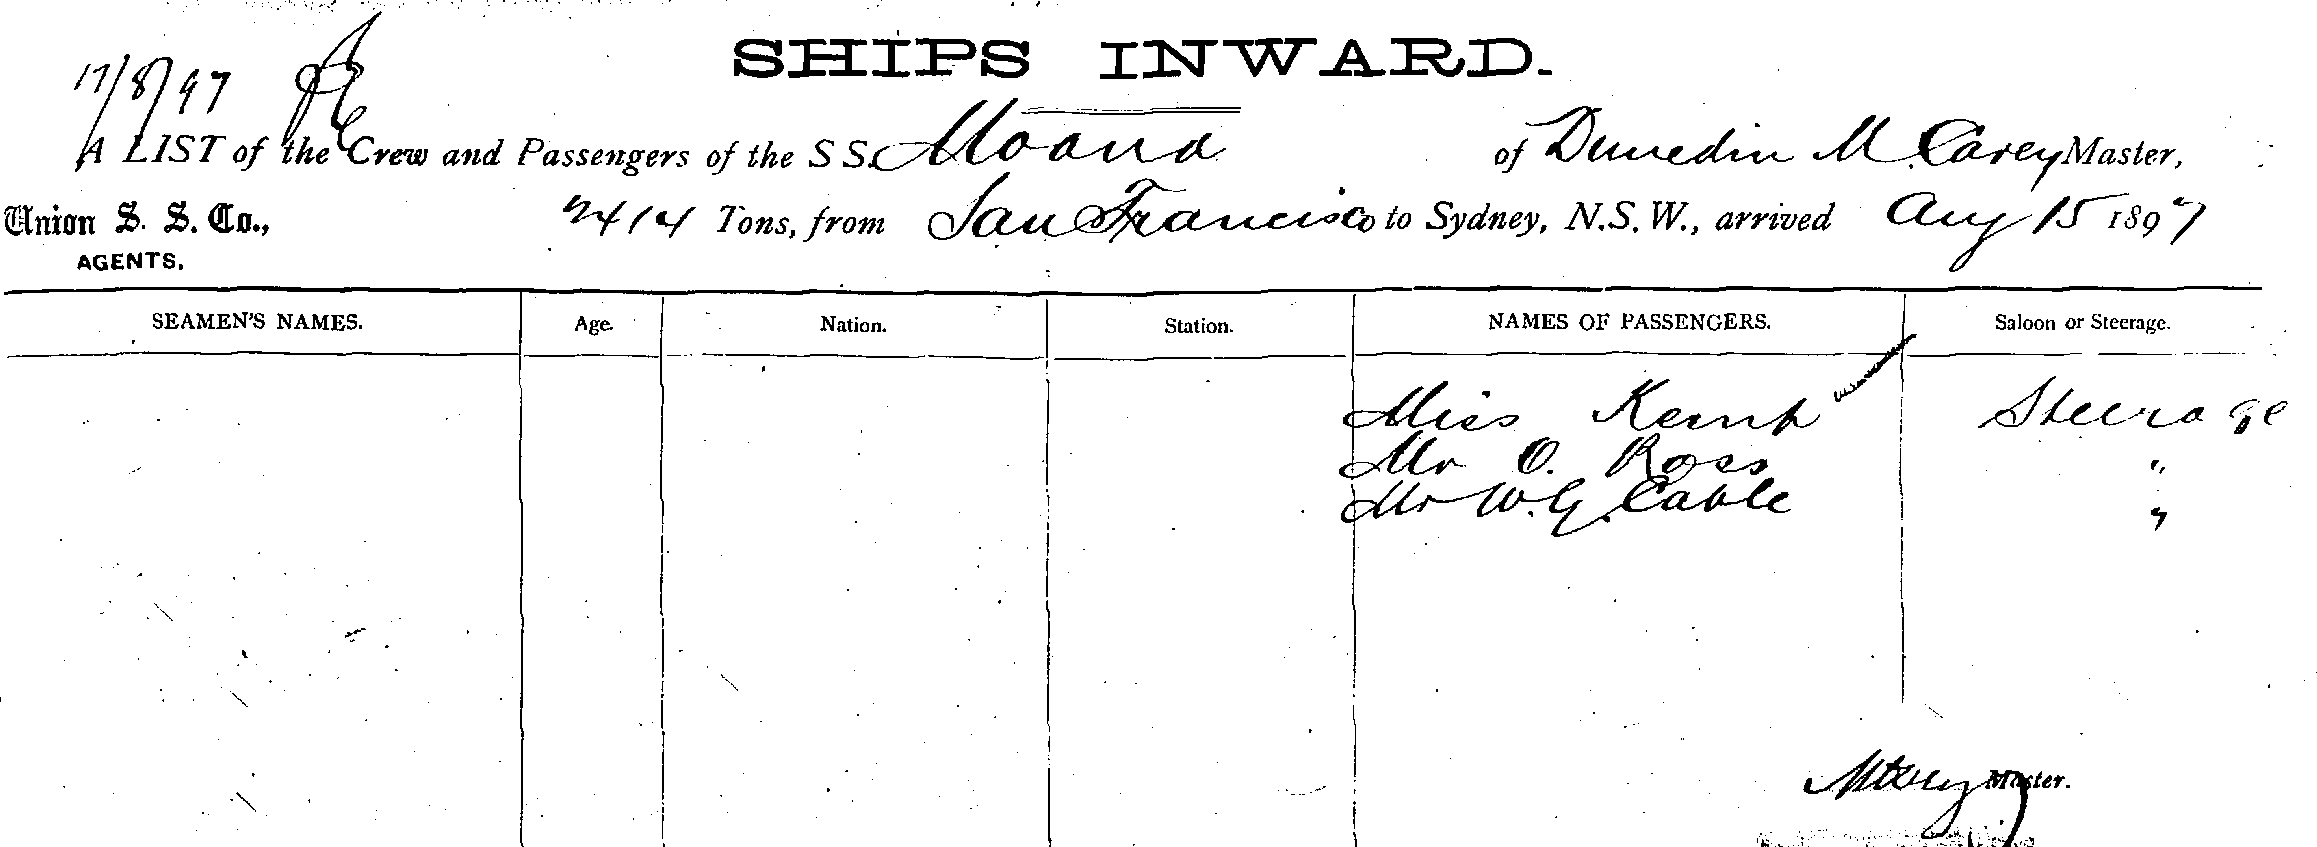 SHIPS INWARD.
17/8/97
A LIST of the Crew and Passengers of the S S. Moana of Dunedin M. Carey Master,
Union S. S. Co., 2414 Tons, from San Francisco to Sydney, N.S.W., arrived Aug 15 1897
AGENTS.
SEAMEN'S NAMES. Age. Nation. Station. NAMES OF PASSENGERS. Saloon or Steerage.
Miss Kemp Steerage
Mr O. Ross "
Mr W.G. Cable "
M Carey Master.